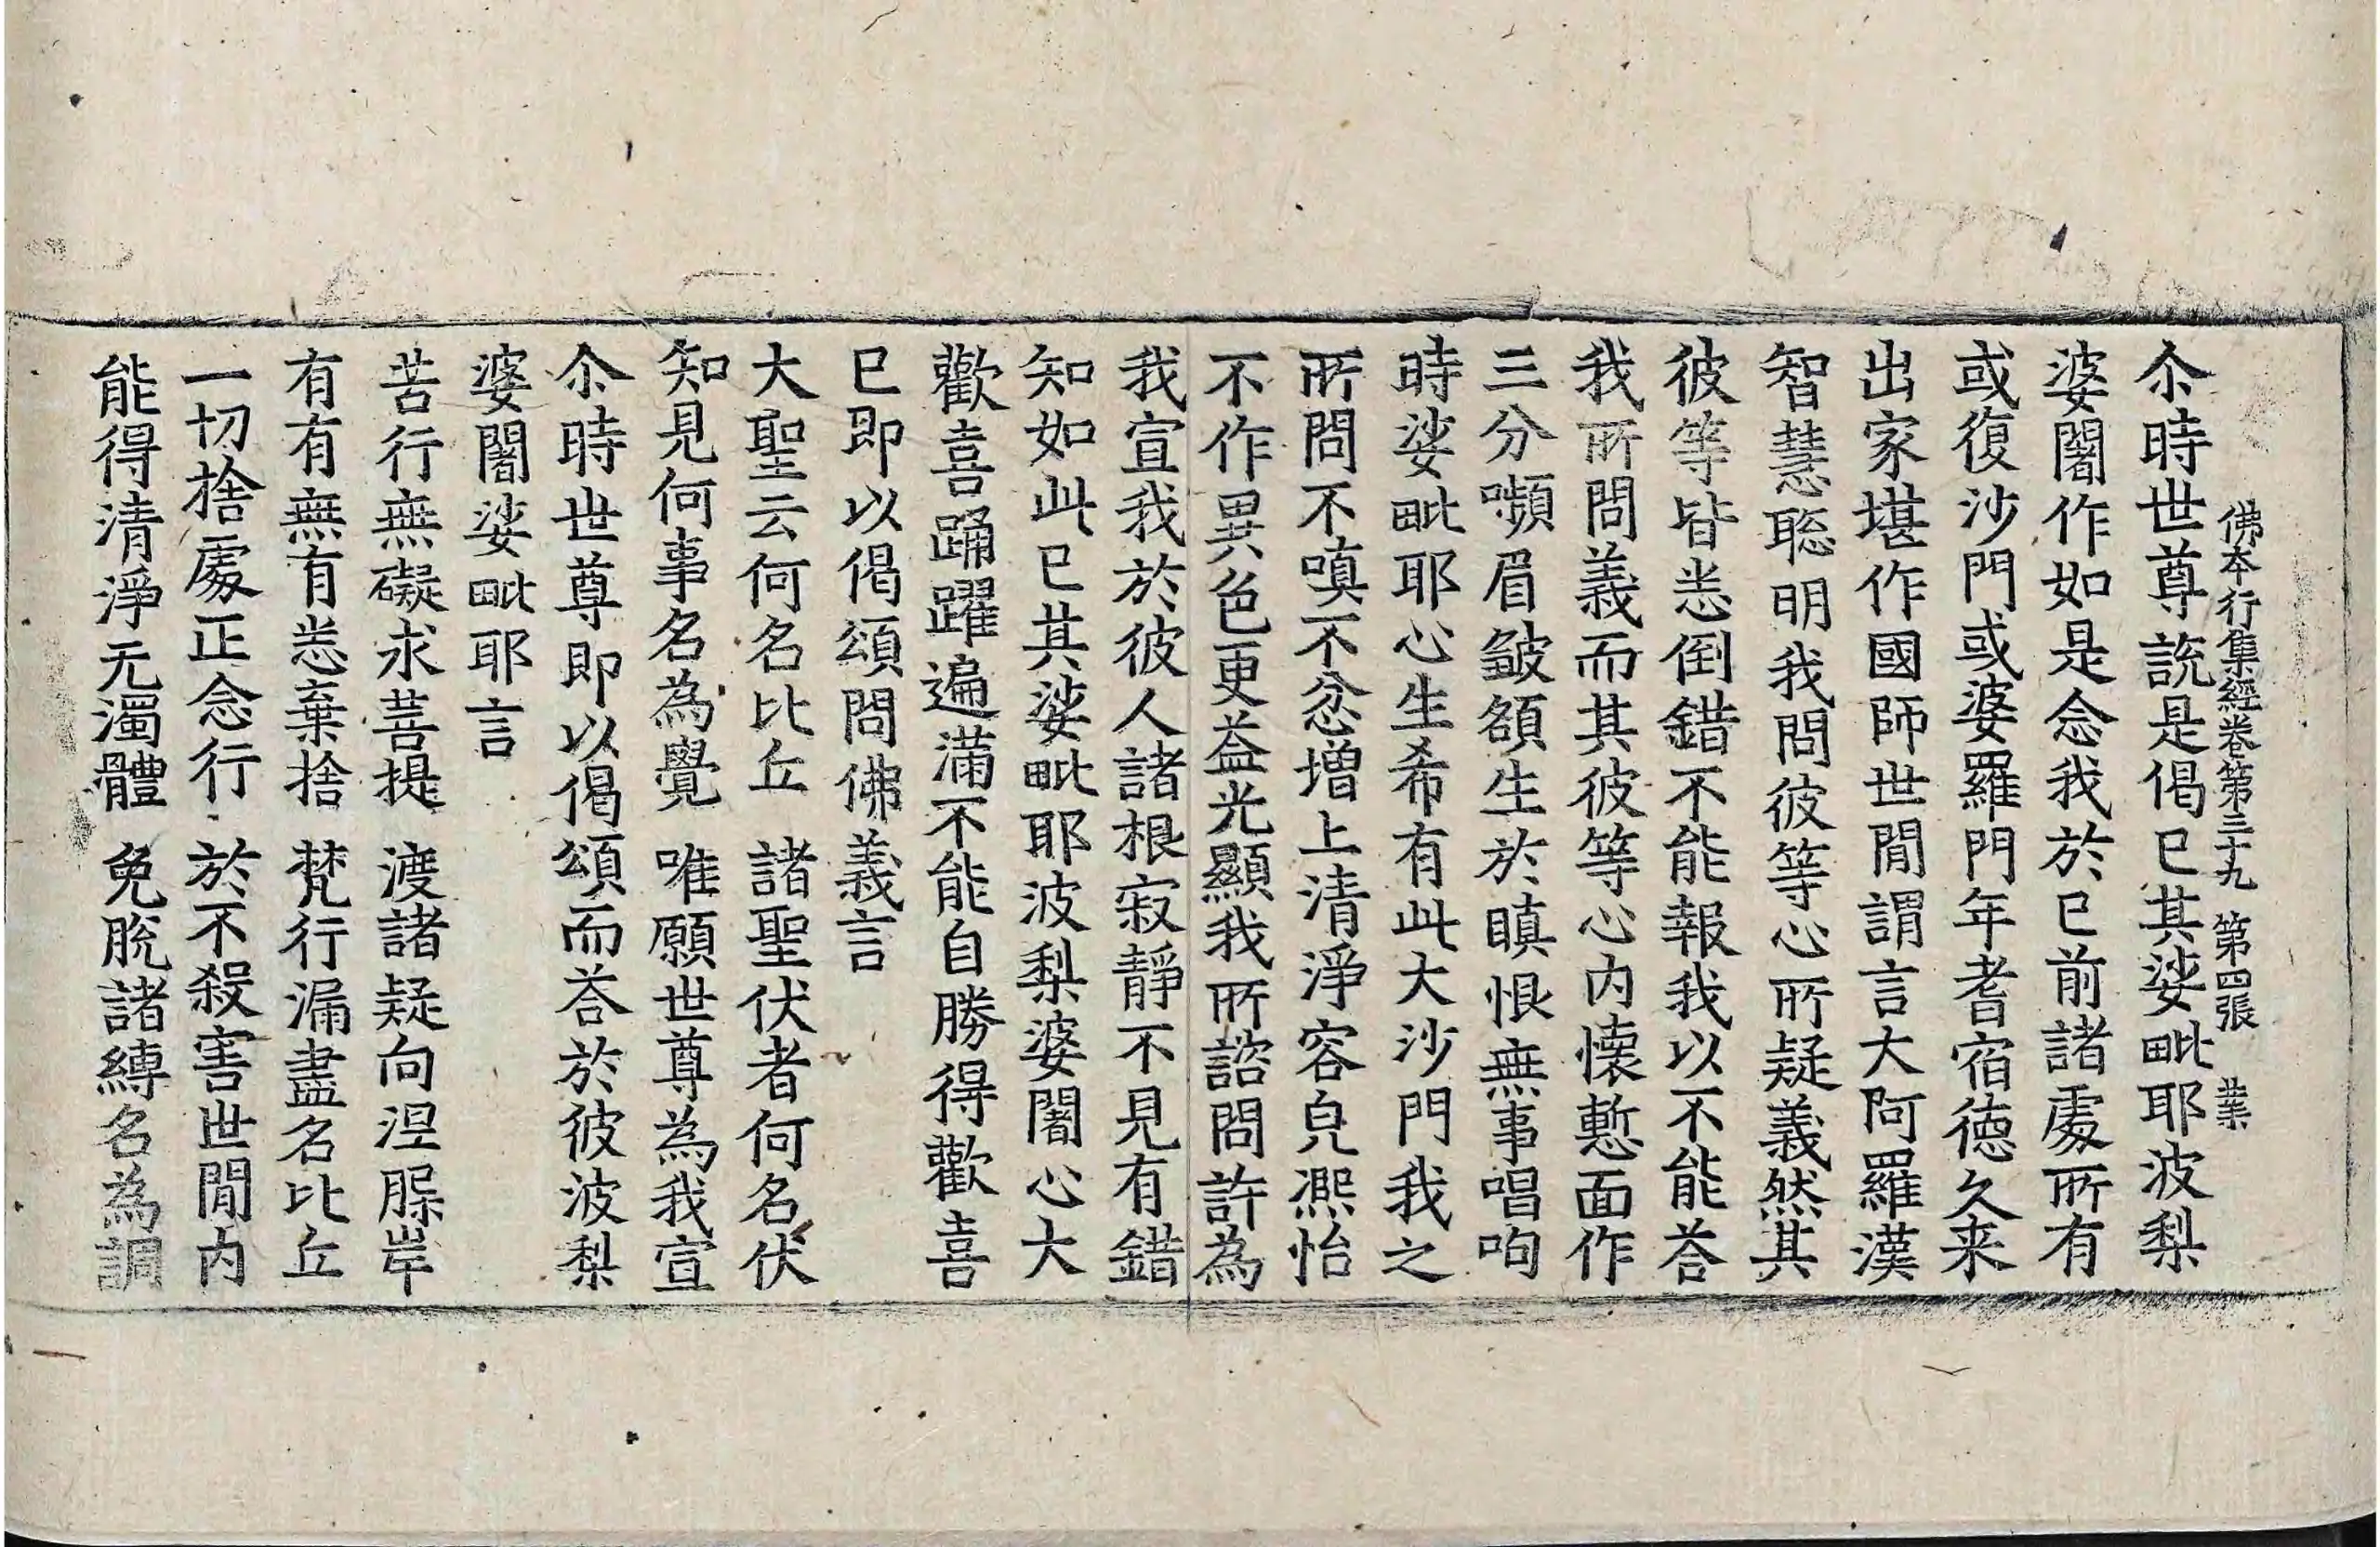 佛本行集經卷第三十九 第四張 業
尒時世尊說是偈已其娑毗耶波梨
婆闍作如是念我於已前諸處所有
或復沙門或婆羅門年耆宿德久来
出家堪作國師世間謂言大阿羅漢
智慧聡明我問彼等心所疑義然其
彼等皆悉倒錯不能報我以不能荅
我所問義而其彼等心内懐慙面作
三分嚬眉皺頟生於瞋恨無事唱呴
時娑毗耶心生希有此大沙門我之
所問不嗔不忿増上清淨容皃熈怡
不作異色更益光顯我所諮問許為
我宣我於彼人諸根寂靜不見有錯
知如此已其娑毗耶波梨婆闍心大
歡喜踊躍遍滿不能自勝得歡喜
已即以偈頌問佛義言
大聖云何名比丘 諸聖伏者何名伏
知見何事名為覺 唯願世尊為我宣
尒時世尊即以偈頌而荅於彼波梨
婆闍娑毗耶言
苦行無礙求菩提 渡諸疑向涅槃岸
有有無有悉棄捨 梵行漏盡名比丘
一切捨處正念行 於不殺害世間内
能得清淨无濁體 免脫諸縛名為調